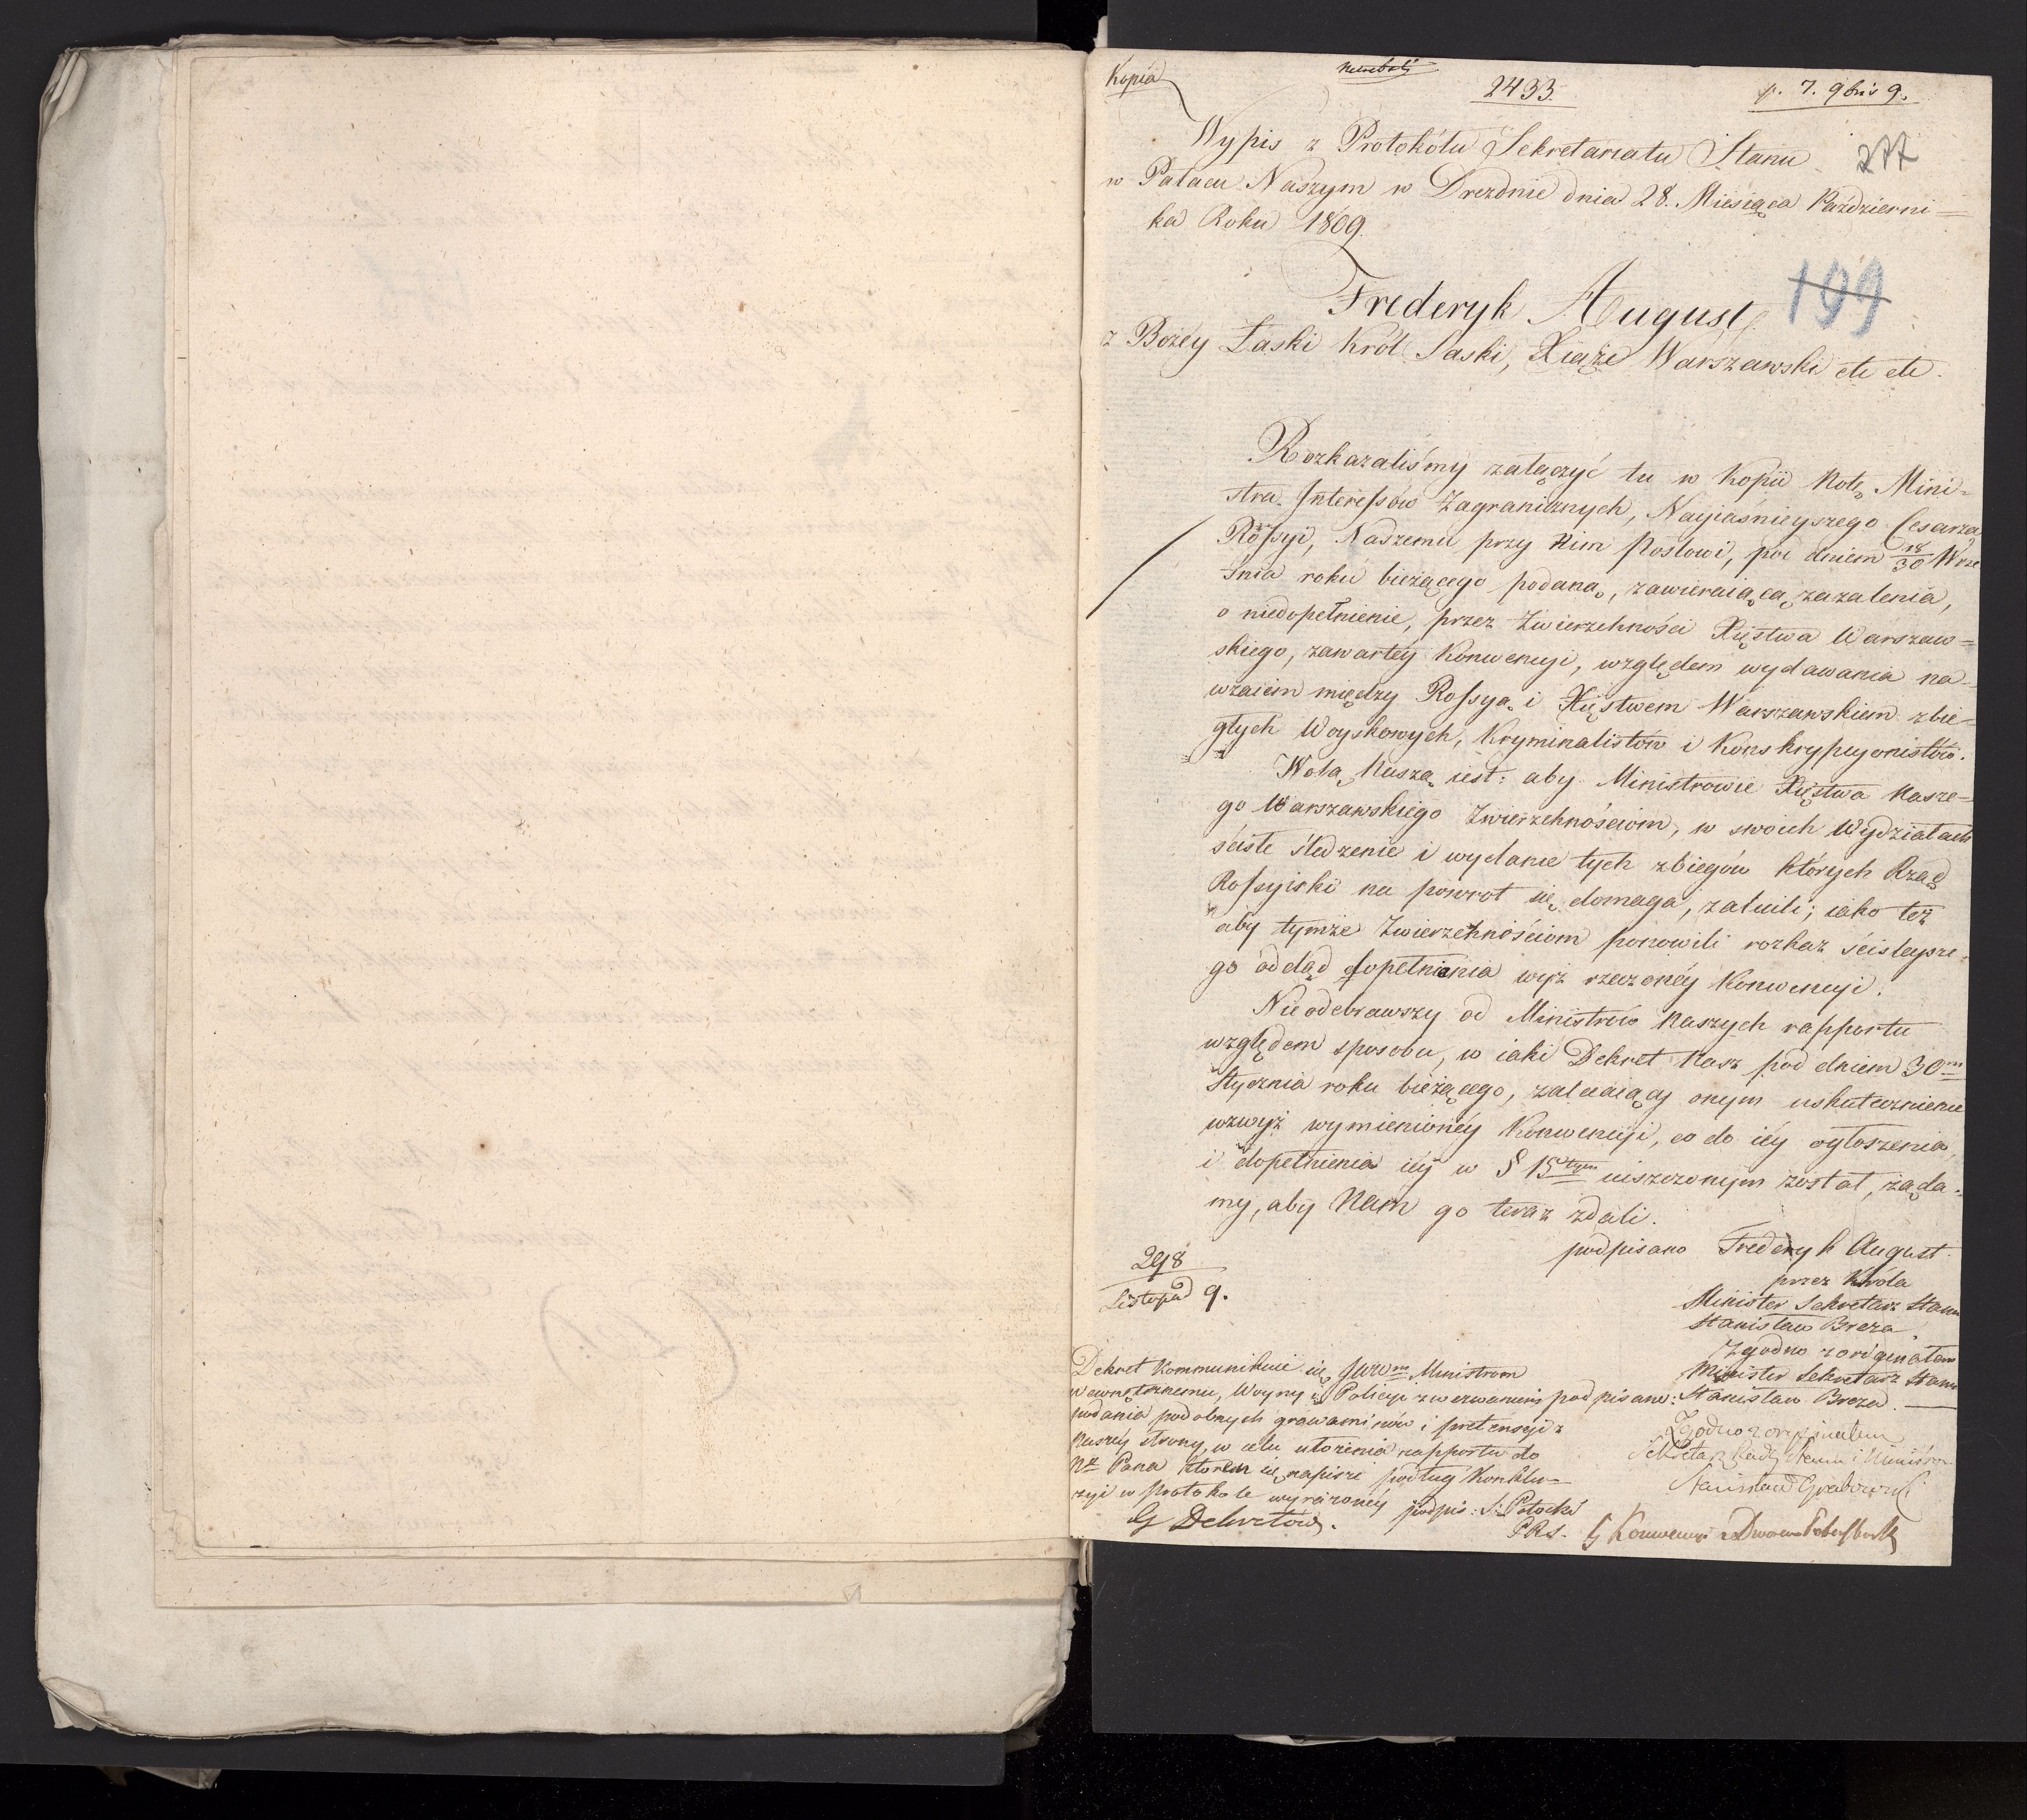 Kopia
2433.
p. 7. 9bris 9.
277
Wypis z Protokółu Sekretariatu Stanu
w Pałacu Naszym w Dreznie dnia 28. Miesiąca Październi=
ka Roku 1809.
199
Frederyk August
z Bożey Łaski Król Saski, Xiąże Warszawski etc etc.
Rozkazaliśmy załączyć tu w Kopii Notę Mini=
stra Interessów Zagranicznych, Nayiaśnieyszego Cesarza
Rossyi, Naszemu przy Nim Posłowi, pod dniem 18/30 Wrze
śnia roku bieżącego podaną, zawieraiącą zażalenia,
o niedopełnienie, przez Zwierzchności Xięstwa Warszaw=
skiego, zawartéy Konwencyi, względem wydawania na=
wzaiem między Rossyą i Xięstwem Warszawskiem zbie=
głych Woyskowych, Kryminalistów i Konskrypcyonistów.
Wolą Naszą iest: aby Ministrowie Xięstwa Nasze=
go Warszawskiego Zwierzchnościom, w swoich Wydziałach
ściste śledzenie i wydanie tych zbiegów których Rząd
Rossyiski na powrot się domaga, zalecili; iako też
aby tymże Zwierzchnościom ponowili rozkaz ścisleysze=
go odtąd dopełniania wyż rzeczonéy Konwencyi.
Nieodebrawszy od Ministrów Naszych rapportu
względem sposobu, w iaki Dekret Nasz pod dniem 30m
Stycznia roku bieżącego, zalecaiący onym uskutecznienie
wzwyż wymienionéy Konwencyi, co do iéy ogłoszenia,
i dopełnienia iéy w § 15tym uiszczonym został, żąda=
my, aby Nam go teraz zdali.
podpisano Frederyk August.
przez Króla
Minister Sekretarz Stanu
Stanisław Breza
298
Listopad 9.
Zgodno z oryginałem
Minister Sekretarz Stanu
podpisano: Stanisław Breza.
Dekret kommunikuie się JWWm Ministrom
Wewnętrznemu, Woyny i Policyi z wezwaniem
podania podobnych grawaminów i pretensyi z
Naszéy strony, w celu ułożenia rapportu do
Nº Pana który się napisze podług Konklu=
zyi w Protokole wyrażonéy podpis: S: Potocki
PRS.
Zgodno z oryginałem
Sekretarz Rady Stanu i Ministrów
Stanisław Grabowski
G Dekretów.
G Konwencyi z Dworem Petersburskim